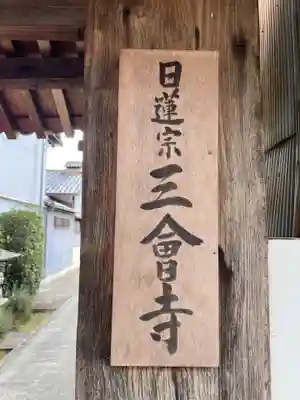 日蓮宗三會寺